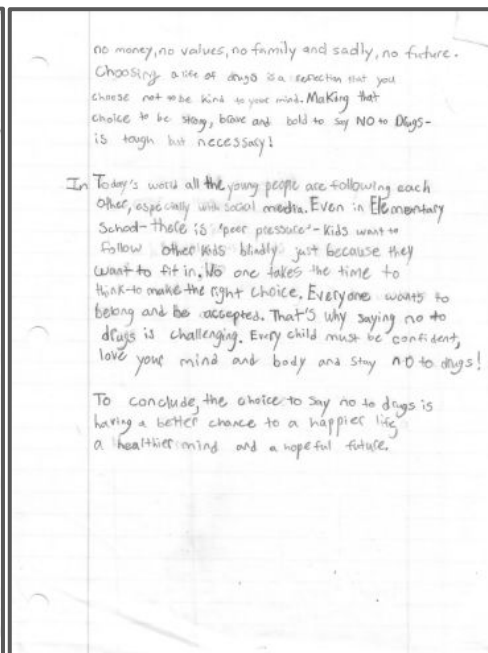 no money, no values, no family and sadly, no future.
Choosing a life of drugs is a reflection that you
choose not to be kind to your mind. Making that
choice to be strong, brave and bold to say NO to Drugs-
is tough but necessary!
In Today's word all the young people are following each
other, especially with social media. Even in Elementary
School- there is 'peer pressure'- Kids want to
follow other kids blindly just because they
want to fit in. No one takes the time to
think-to make the right choice. Everyone wants to
belong and be accepted. That's why saying no to
drugs is challenging. Every child must be confident,
love your mind and body and stay NO to drugs!
To conclude, the choice to say no to drugs is
having a better chance to a happier life
a healthier mind and a hopeful future.